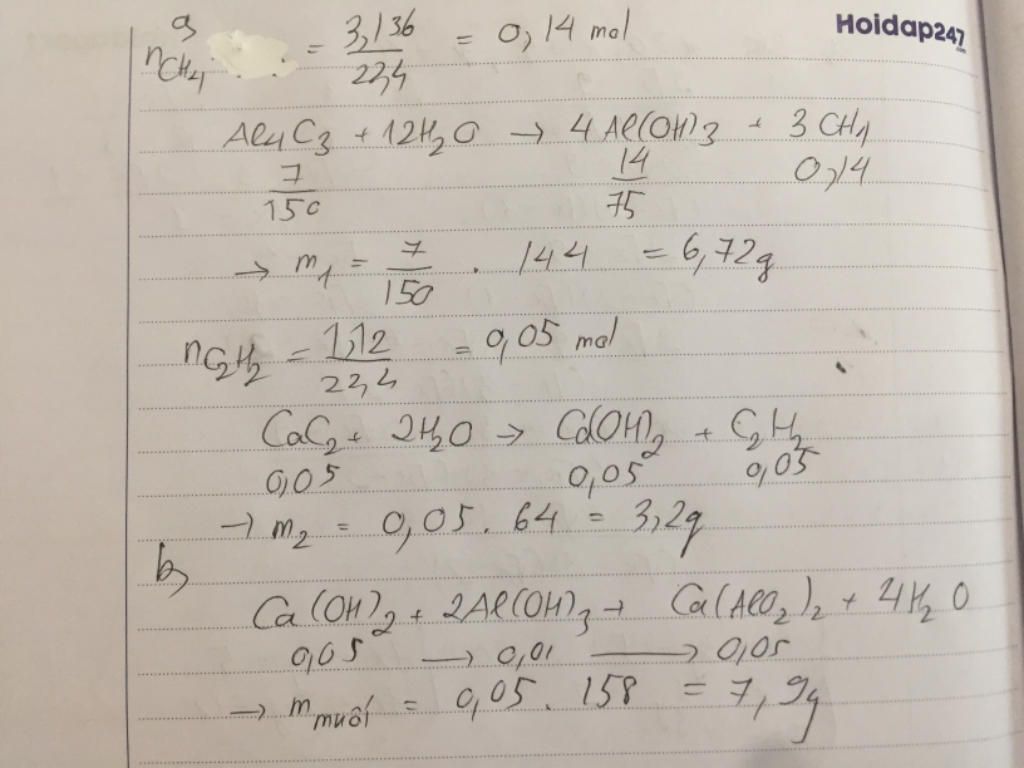 Hoidap247.com
a,
nCH4 = 3,136/22,4 = 0,14 mol
Al4C3 + 12H2O → 4Al(OH)3 + 3CH4
7/150 14/75 0,14
→ m1 = 7/150 . 144 = 6,72g
nC2H2 = 1,12/22,4 = 0,05 mol
CaC2 + 2H2O → Ca(OH)2 + C2H2
0,05 0,05 0,05
→ m2 = 0,05. 64 = 3,2g
b,
Ca(OH)2 + 2Al(OH)3 → Ca(AlO2)2 + 4H2O
0,05 → 0,01 → 0,05
→ m muối = 0,05. 158 = 7,9g